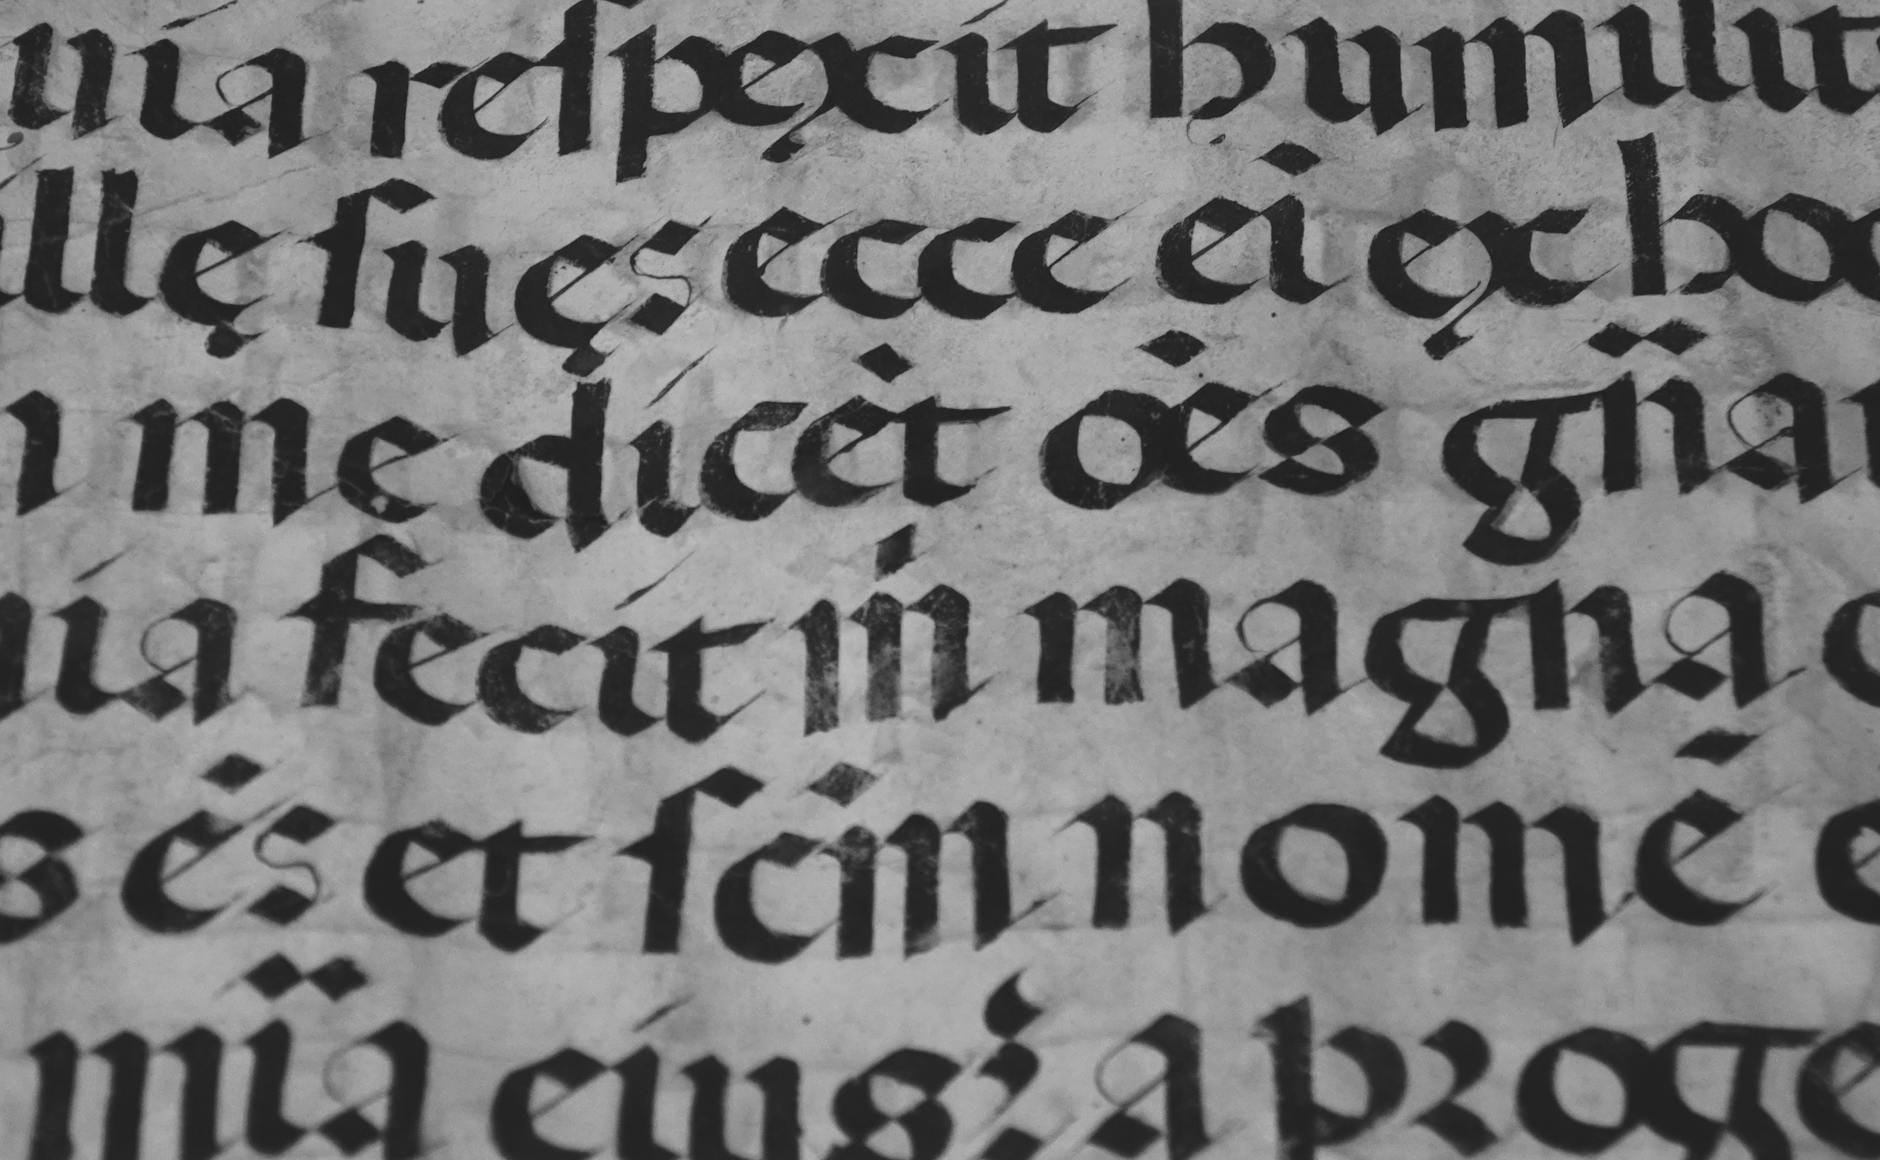 uia respęxit humilit
illę suęs ecce ei ęx hoc
n me dicėt oe̊s gn̈a
uia fecit m̍ magna
s ės et scm̍ nomē e
mïa eius; a proge